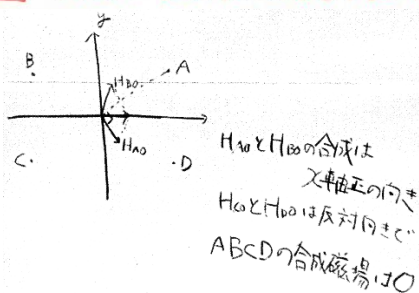 y
B
A
H_BO
H_AO
C
D
H_AOとH_BOの合成は
x軸正の向き
H_COとH_DOは反対向きで
ABCDの合成磁場は0